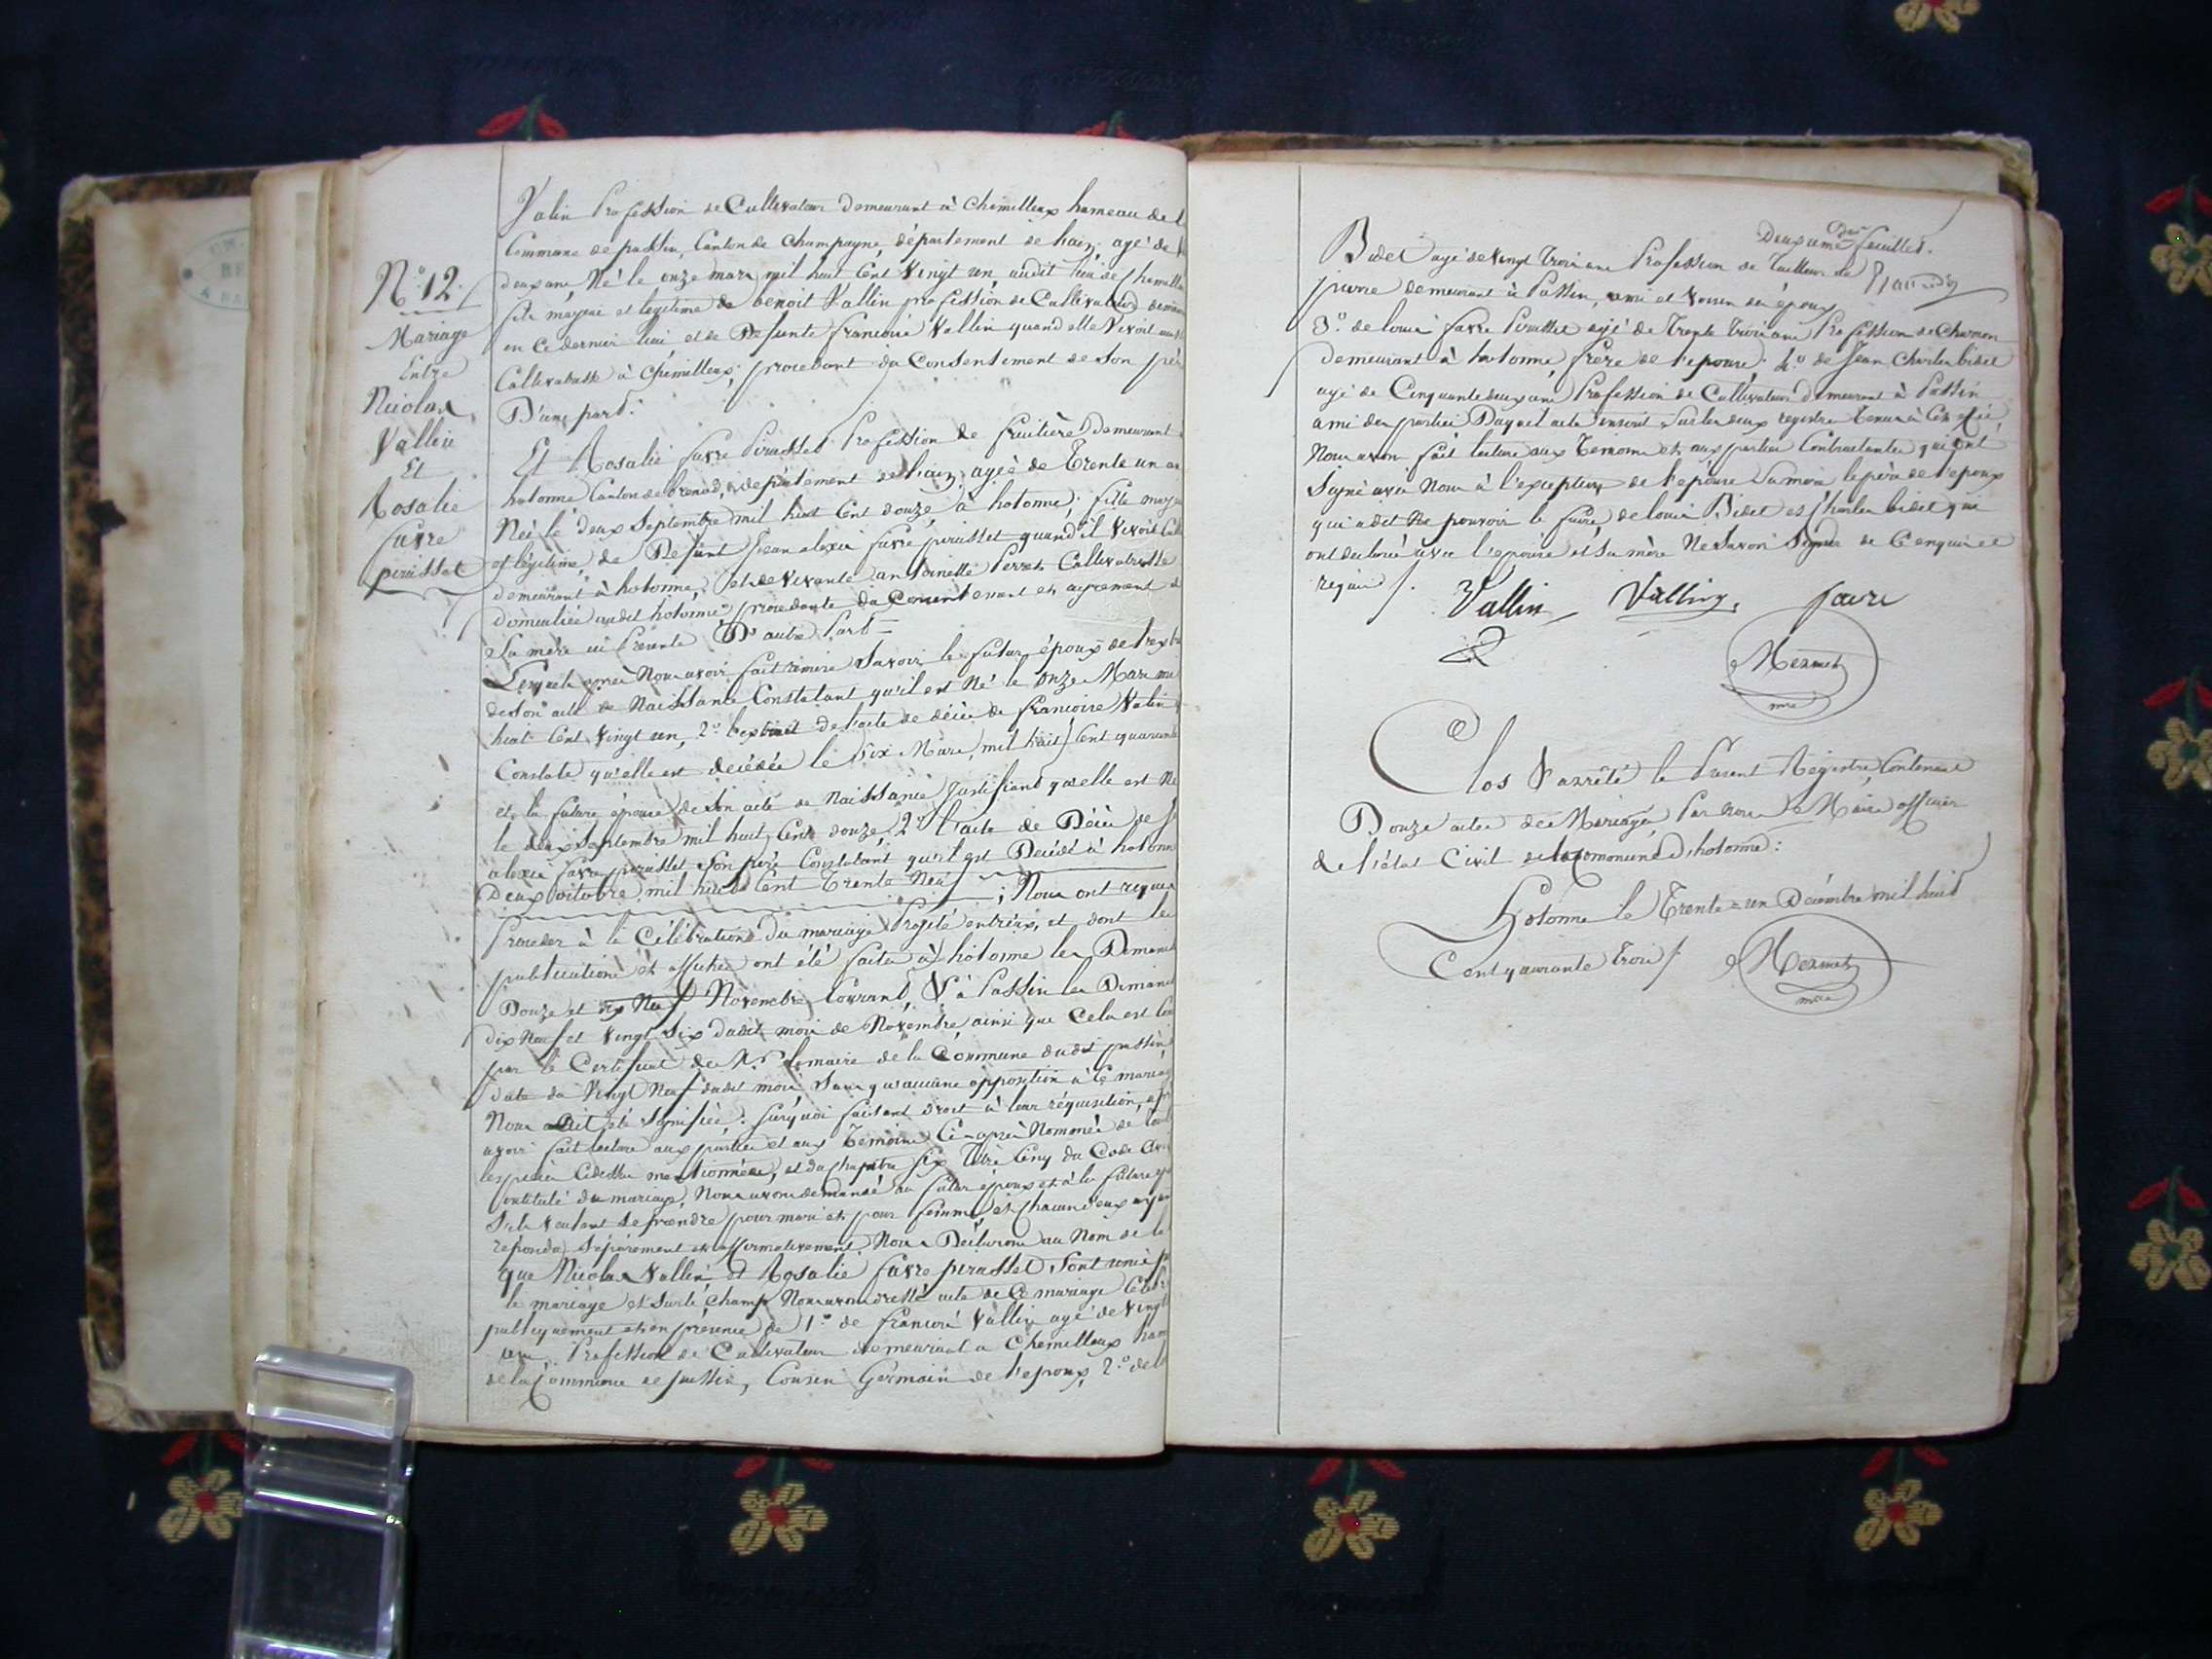 N° 12.
Mariage
Entre
Nicolas
Vallin
Et
Rosalie
favre
pirasset
Valin Profession de Cultivateur demeurant à Chemilleux hameau de l
Commune de passin, Canton de Champagne, département de l'ain, agé de
deux ans, Né le onze mars mil huit Cent Vingt un, audit lieu de Chemill
fils majeur et légitime de benoit Vallin profession de Cultivateur demeur
en Ce dernier lieu, et de Defunte francoise Vallin quand elle Vivoit
Cultivatrice à Chemilleux; procedant du Consentement de Son pèr
D'une part.
Et Rosalie favre Pirasset Profession de fruitière demeurant
hotonne Canton de brenod, département de l'ain, agée de Trente un an
Née le deux Septembre mil huit Cent douze, à hotonne; fille maj
et légitime, de Defunt Jean alexis favre pirasset quand il Vivoit Cul
demeurant à hotonne, et de Vivante antoinette Perret Cultivatrice
domiciliée audit hotonne, procedante du Consentement et agrement d
Sa mère ici Présente D'autre Part =
Lesquels après Nous avoir fait remise Savoir le futur époux de l'ext
de Son acte de Naissance Constatant qu'il est Né le onze Mars mil
huit Cent Vingt un, 2° l'extrait de l'acte de décès de francoise Valin
Constate qu'elle est décédée le Six Mars, mil huit Cent quarante
et la future épouse de Son acte de Naissance Justifiant qu'elle est Né
le deux Septembre mil huit Cent douze, 2° l'acte de Décès de J
alexis favre pirasset Son père Constatant qu'il est Décédé à hotonn
Deux octobre mil huit Cent Trente Neuf ; Nous ont requis
Proceder à la Célébration du mariage Projeté entr'eux, et dont les
publications et affiches ont été faites à hotonne les Dimanch
Douze et dix Neuf Novembre Courant, & à Passin les Dimanch
dix Neuf et Vingt Six dudit mois de Novembre ainsi que Cela est
par le Certificat de Mr. le maire de la Commune dudit passin
date du Vingt Neuf dudit mois Sans qu'aucune opposition à Ce mariag
Nous ait été Signifiée: Surquoi faisant droit à leur réquisition, apr
avoir fait lecture aux parties et aux Témoins Ci-après Nommés de tout
les pièces Cidessus mentionnées, et du Chapitre Six Titre Cinq du Code Civ
intitulé du mariage, Nous avons demandé au futur époux et à la future
S'ils veulent se prendre pour mari et pour femme, et chacun d'eux ayan
répondu Séparement et affirmativement Nous Déclarons au Nom de la
que Nicolas Vallin et Rosalie favre pirasset Sont unis p
le mariage et Sur le Champ Nous avons dressé acte de Ce mariage Célébr
publiquement et en présence de 1.° de francois Vallin agé de Vingt
un Profession de Cultivateur demeurant à Chemilleux ham
de la Commune de passin, Cousin Germain de l'epoux, 2.° de l
Deuxieme feuillet.
Bidet agé de Vingt Trois ans Profession de Tailleur de
pierre demeurant à Passin, ami et Voisin de l'époux
3.° de louis favre Pirasset agé de Trente Trois ans Profession de Charron
demeurant à hotonne, frère de l'epouse; 4.° de Jean Charles bidet
agé de Cinquante deux ans Profession de Cultivateur demeurant à Passin
ami des parties Duquel acte inscrit Sur les deux registres Tenus à Cet effet
Nous avons fait lecture aux Temoins et aux parties Contractantes qui ont
Signé avec Nous à l'exception de l'epouse Sa mère le père de l'epoux
qui a dit Ne pouvoir le faire, de louis Bidet et Charles bidet qui
ont déclaré avec l'epouse et Sa mère Ne Savoir Signer de Ce enquis et
requis /.
Vallin Vallin, favre
Mermet
mre
Clos & arrêté le Présent Régistre, Contenant
Douze actes de Mariages, Par Nous Maire officier
de l'état Civil de la Commune d'hotonne:
Hotonne le Trente = un Décembre mil huit
Cent quarante trois /.
Mermet
mre